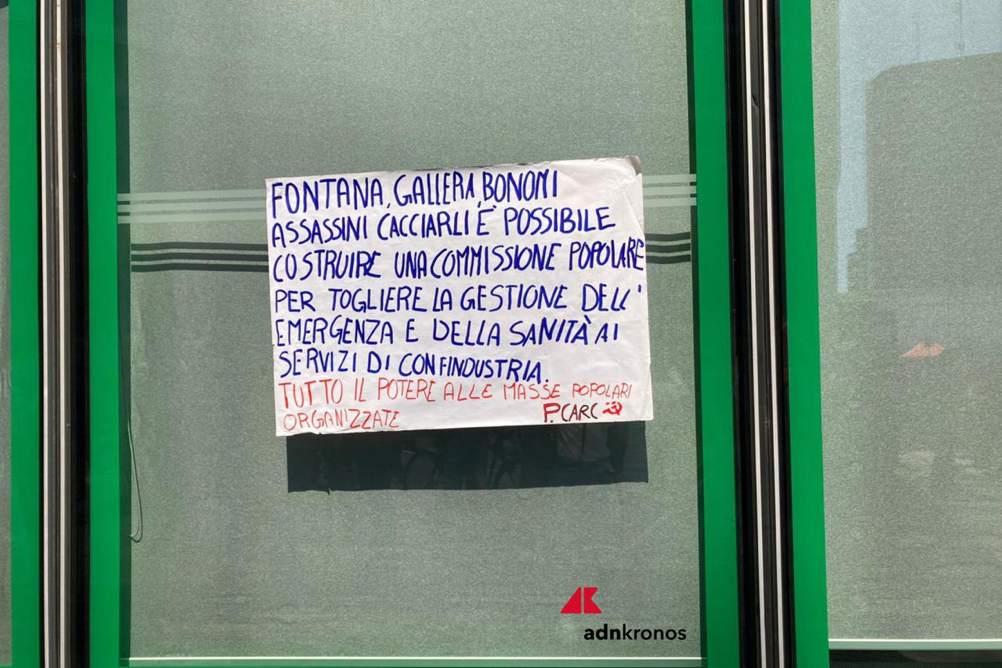 FONTANA, GALLERA, BONOMI
ASSASSINI CACCIARLI È POSSIBILE
COSTRUIRE UNA COMMISSIONE POPOLARE
PER TOGLIERE LA GESTIONE DELL'
EMERGENZA E DELLA SANITÀ AI
SERVIZI DI CONFINDUSTRIA.
TUTTO IL POTERE ALLE MASSE POPOLARI
ORGANIZZATE P.CARC
adnkronos